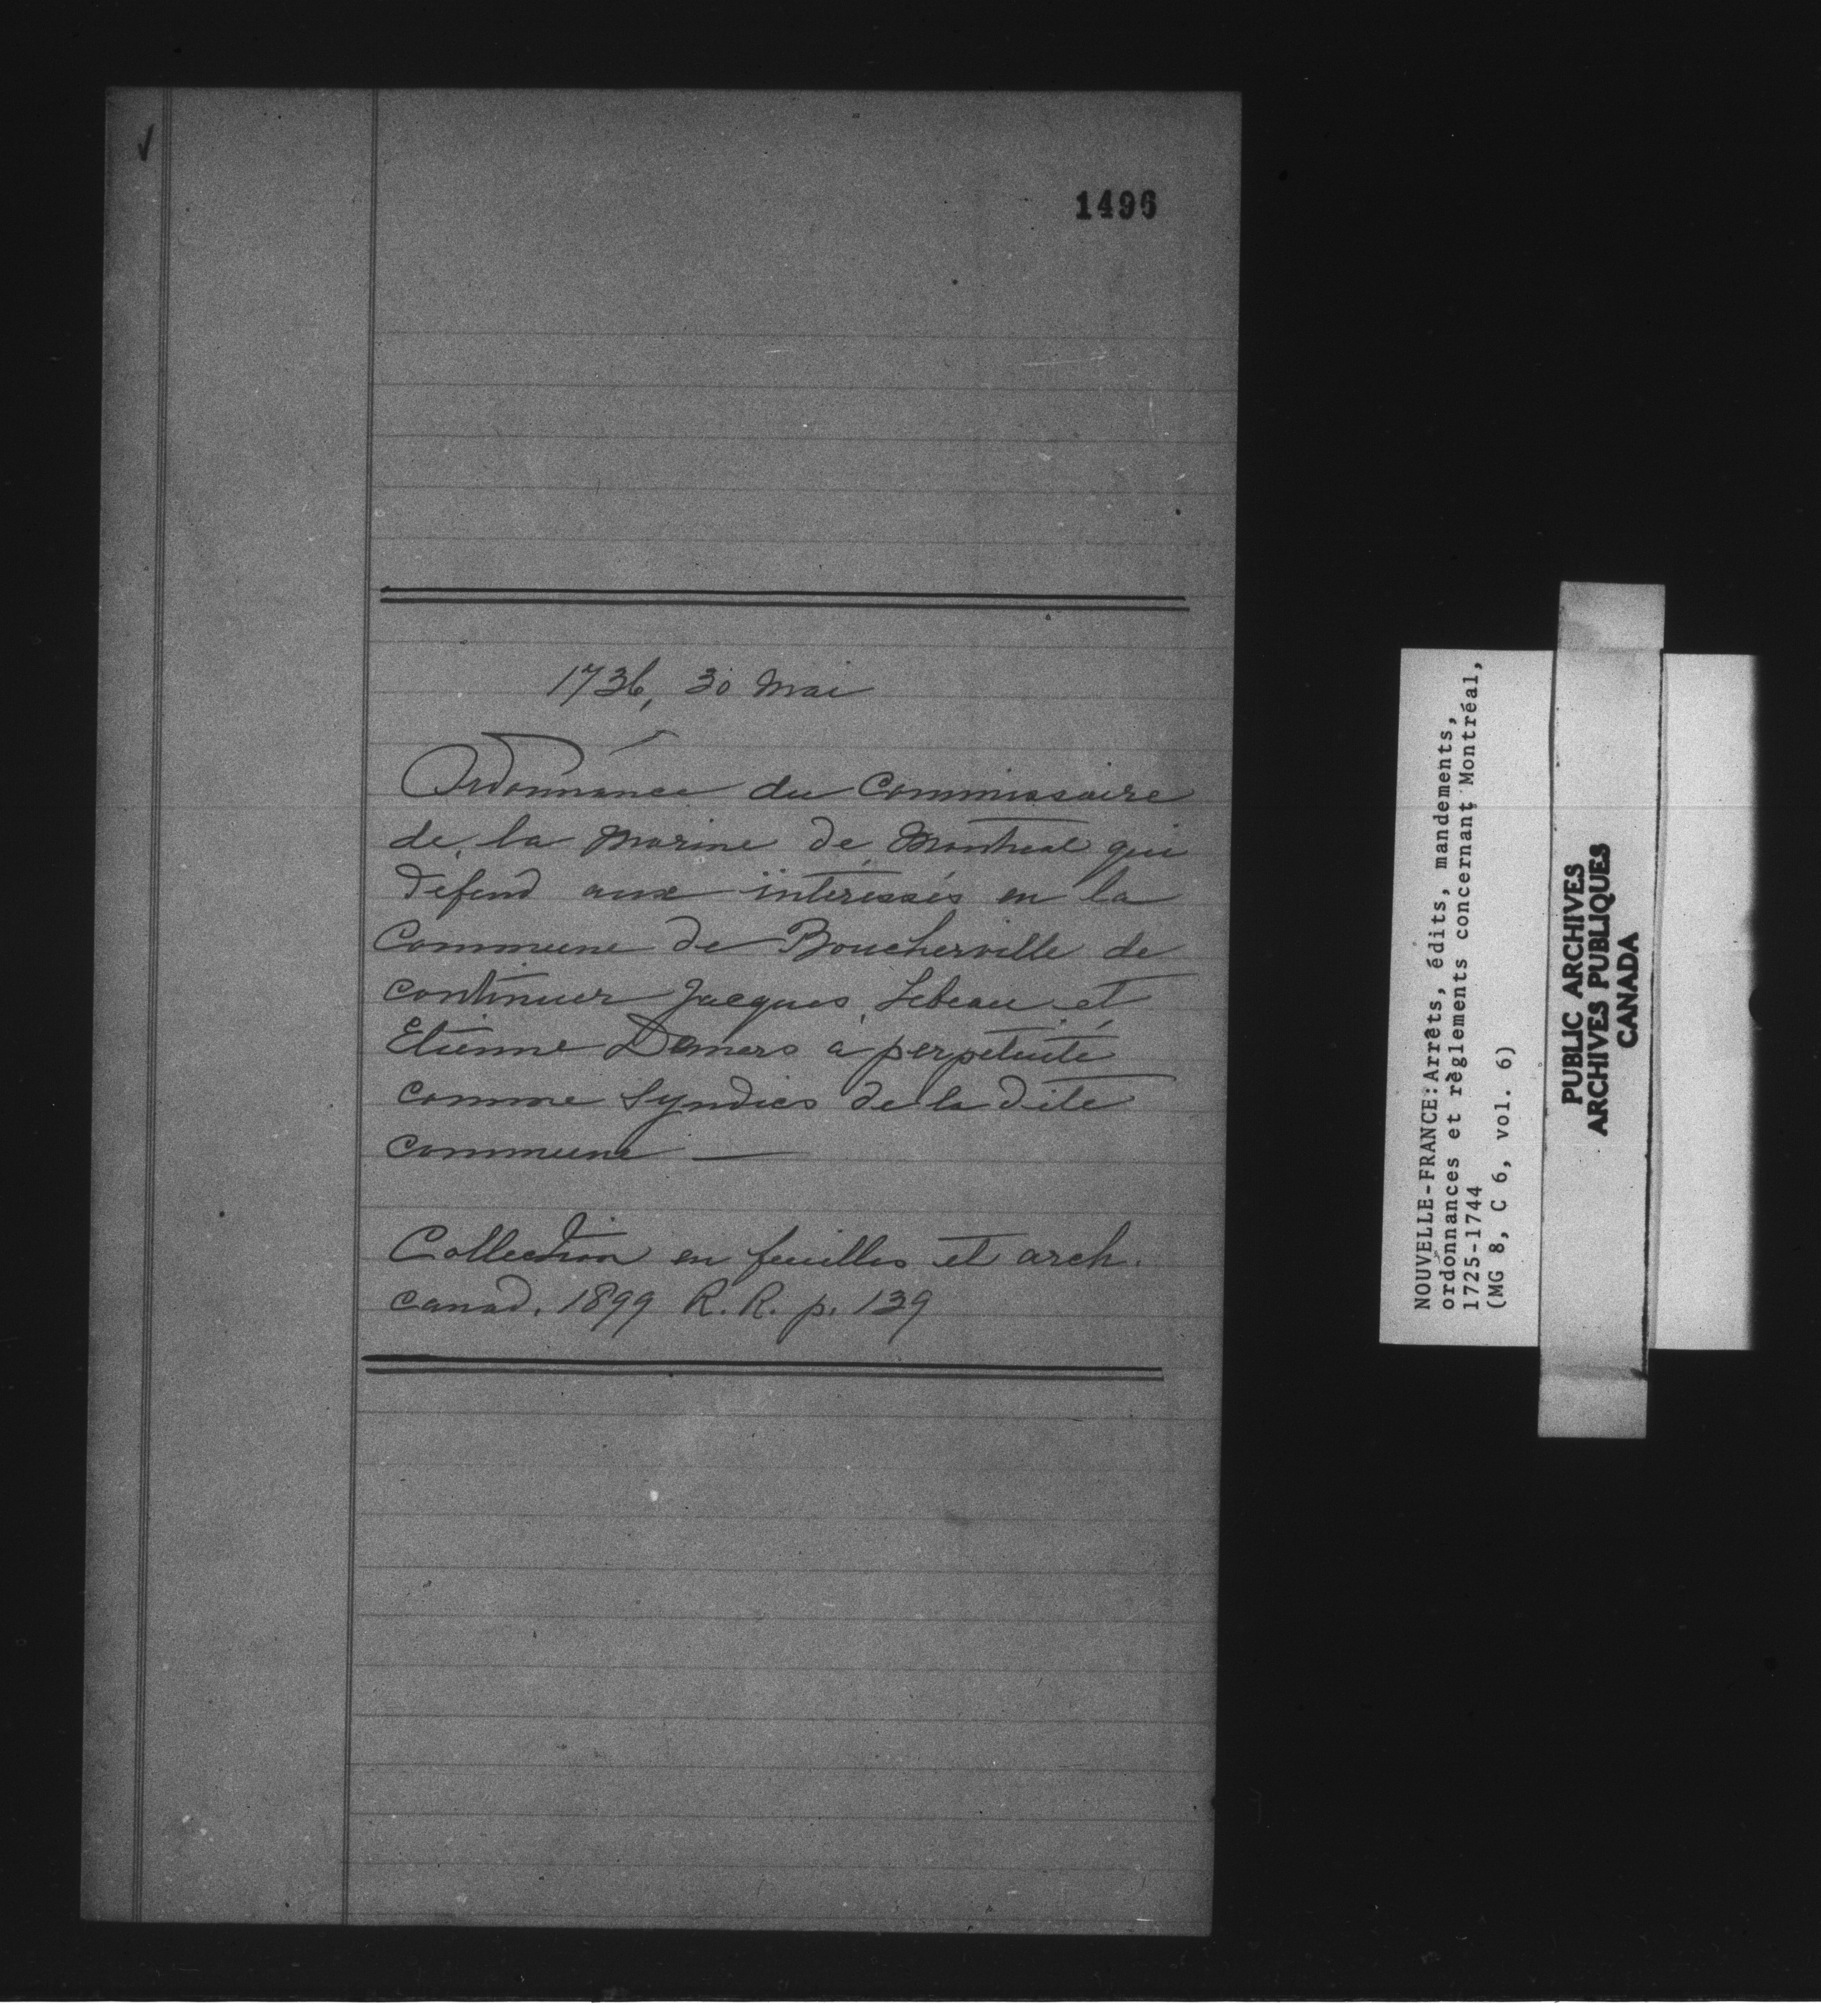 1496
1736, 30 Mai
Ordonnance du Commissaire
de la Marine de Montreal qui
défend aux intéressés en la
Commune de Boucherville de
continuer Jacques Lebeau et
Etienne Demers a perpétuité
comme Syndics de la dite
commune —
Collection en feuilles et arch.
canad. 1899 R. R. p. 139
NOUVELLE-FRANCE:Arrêts, édits, mandements,
ordonnances et règlements concernant Montréal,
1725-1744
(MG 8, C 6, vol. 6)
PUBLIC ARCHIVES
ARCHIVES PUBLIQUES
CANADA